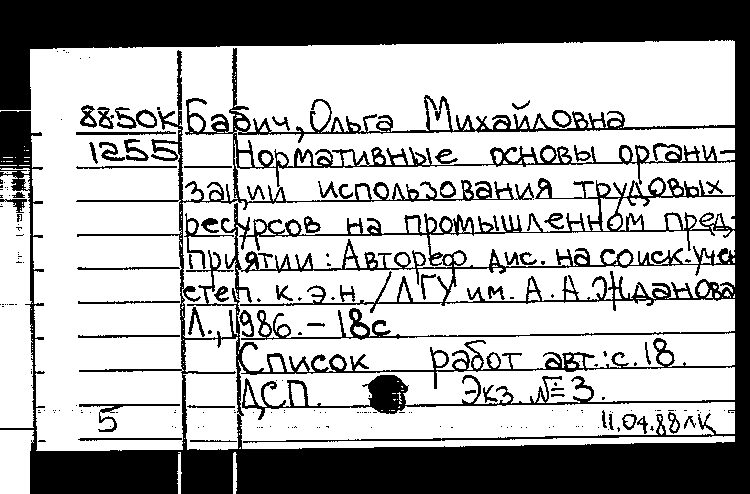 8850К Бабич, Ольга Михайловна
1255 Нормативные основы органи-
зации использования трудовых
ресурсов на промышленном пред-
приятии: Автореф. дис. на соиск. учен
степ. к.э.н. / ЛГУ им. А.А. Жданова
Л., 1986. - 18с.
Список работ авт.: с. 18.
ДСП. Экз. № 3.
5 11.04.88 ЛК